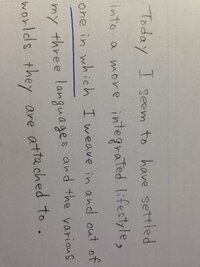 Today I seem to have settled
into a more integrated lifestyle,
one in which I weave in and out of
my three languages and the various
worlds they are attached to.